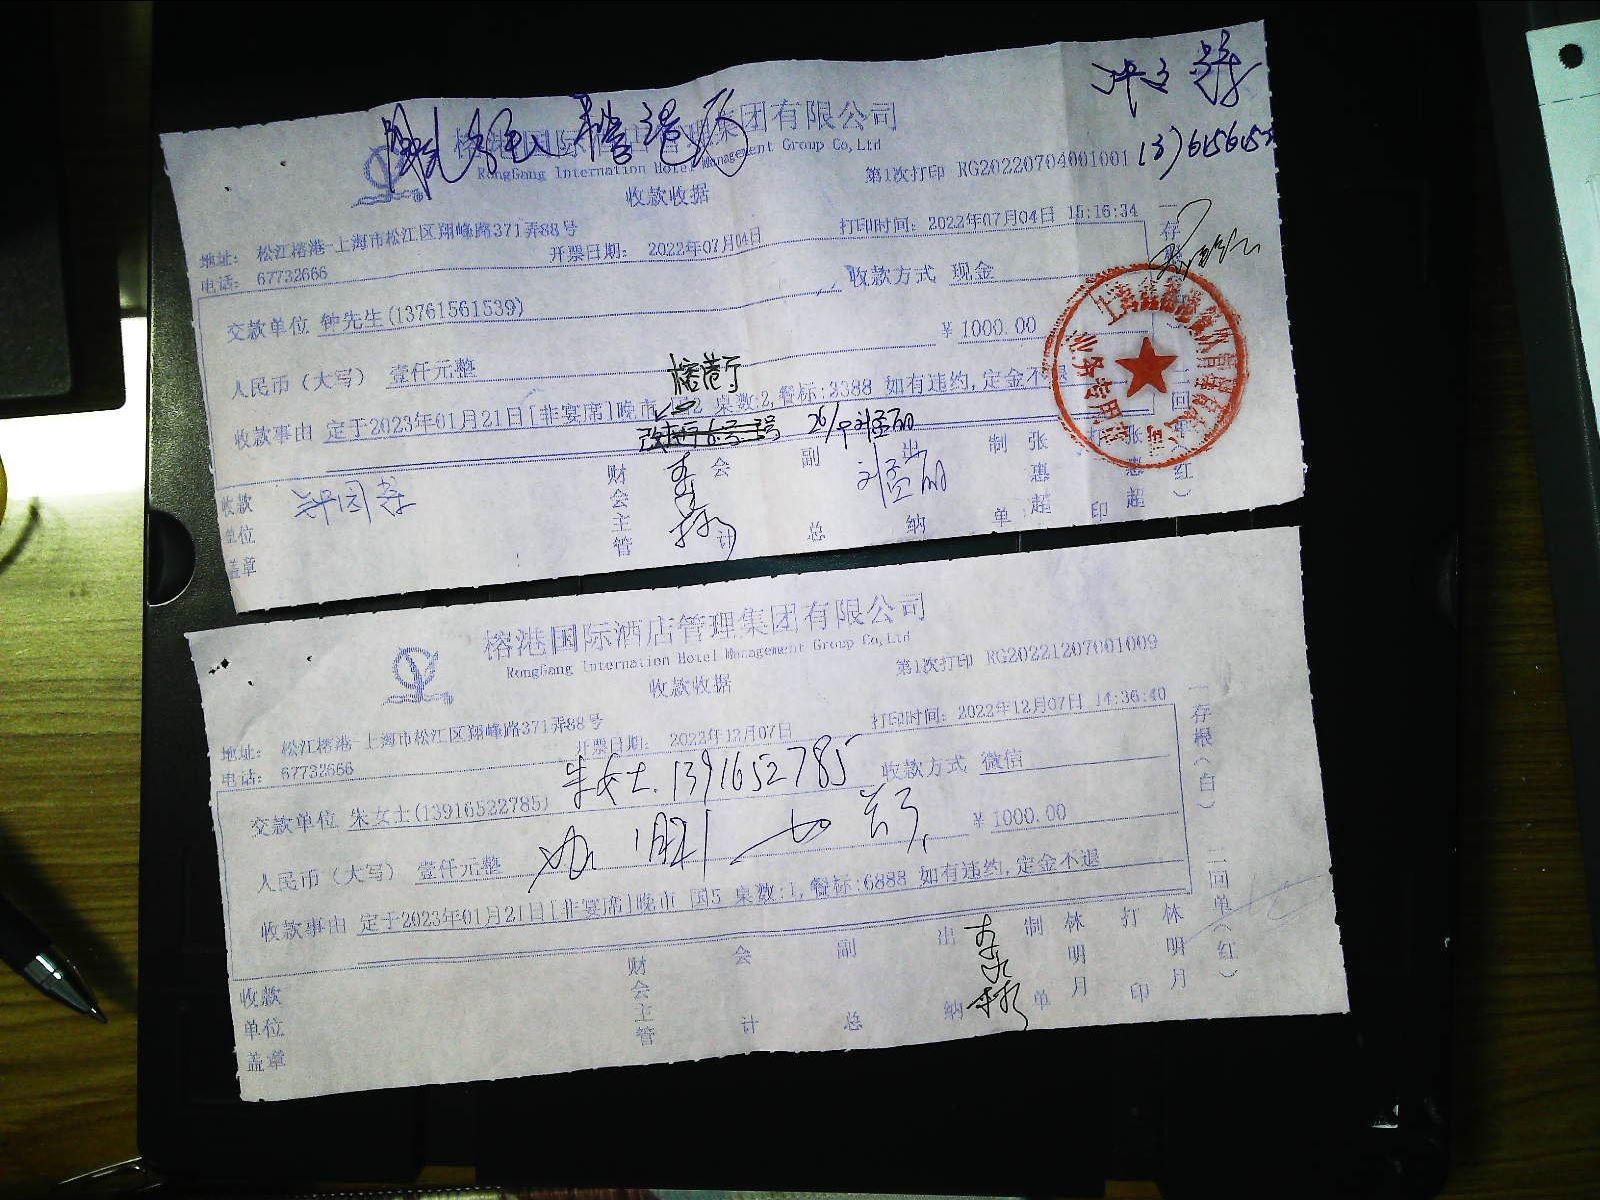 榕港国际酒店管理集团有限公司
RongGang Internation Hotel Management Group Co,Ltd
收款收据
第1次打印 RG20220704001001
地址: 松江榕港-上海市松江区翔峰路371弄88号
电话: 67732666
开票日期: 2022年07月04日
打印时间: 2022年07月04日 15:16:34
交款单位 钟先生(13761561539)
收款方式 现金
人民币(大写) 壹仟元整
¥ 1000.00
榕港厅
收款事由 定于2023年01月21日[非宴席]晚市 国2 桌数:2,餐标:3388 如有违约,定金不退
收款单位盖章
财会主管
会计
副总
出纳
制单 张惠超
打印 张惠超
业务专用章
榕港国际酒店管理集团有限公司
RongGang Internation Hotel Management Group Co,Ltd
收款收据
第1次打印 RG20221207001009
地址: 松江榕港-上海市松江区翔峰路371弄88号
电话: 67732666
开票日期: 2022年12月07日
打印时间: 2022年12月07日 14:36:40
朱女士.13916522785
交款单位 朱女士(13916522785)
收款方式 微信
人民币(大写) 壹仟元整
¥ 1000.00
收款事由 定于2023年01月21日[非宴席]晚市 国5 桌数:1,餐标:6888 如有违约,定金不退
一存根(白) 二回单(红)
收款单位盖章
财会主管
会计
副总
出纳
制单 林明月
打印 林明月